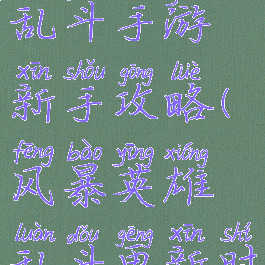 乱斗手游
xīn shǒu gōng lüè
新手攻略(
fēng bào yīng xióng
风暴英雄
luàn dòu gēng xīn shí
乱斗更新时